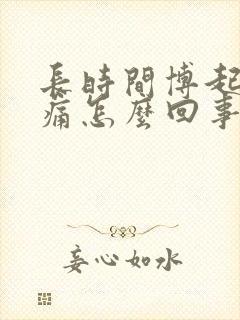 長時間博起
痛怎麼回事
妄心如水